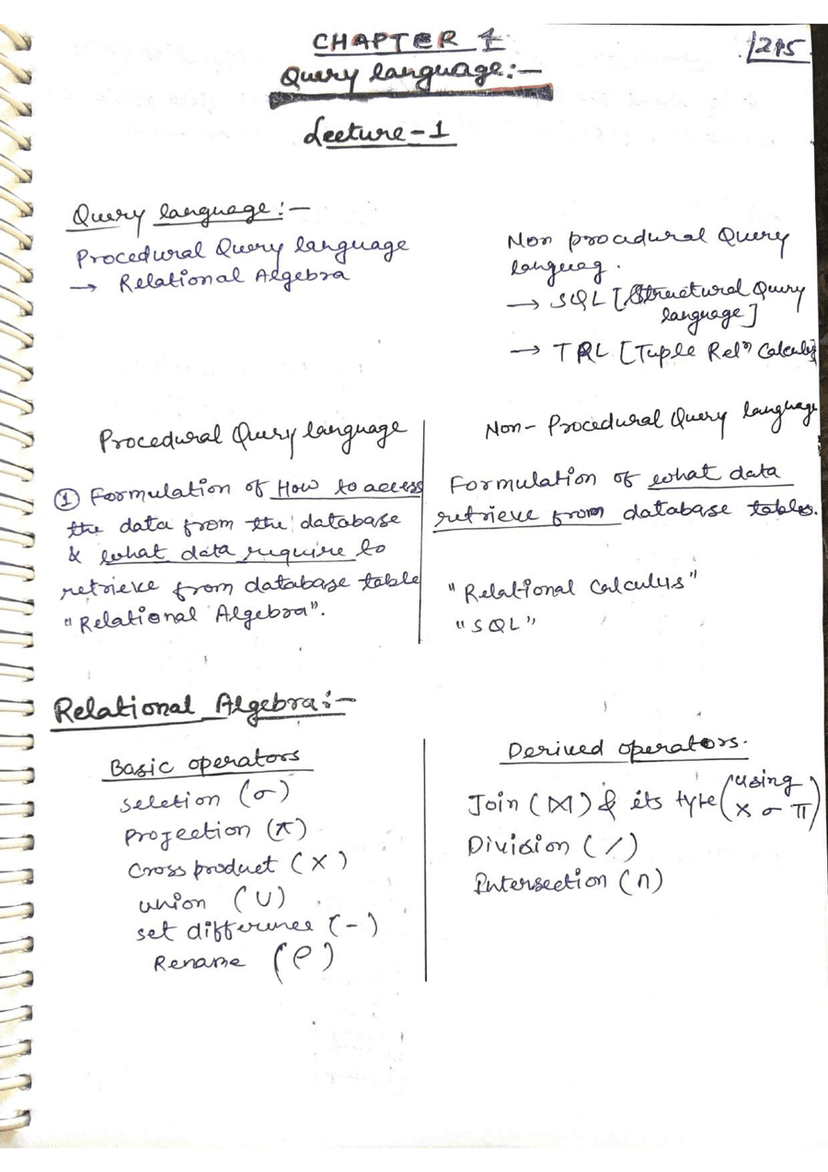 CHAPTER 1
Query language:-
Lecture-1
Query language:-
Procedural Query language
→ Relational Algebra
Non procedural Query
langueg.
→ SQL [Structural Query
language]
→ TRL [Tuple Relⁿ Calculus]
Procedural Query language
① Formulation of How to access
the data from the database
& what data require to
retrieve from database table
"Relational Algebra".
Non-Procedural Query language
Formulation of what data
retrieve from database tables.
"Relational Calculus"
"SQL"
Relational Algebra:-
Basic operators
seletion (σ)
Projection (π)
Cross product (×)
union (∪)
set difference (-)
Rename (ρ)
Derived operators.
Join (⋈) & its type (using
× σ π)
Division (/)
Intersection (∩)